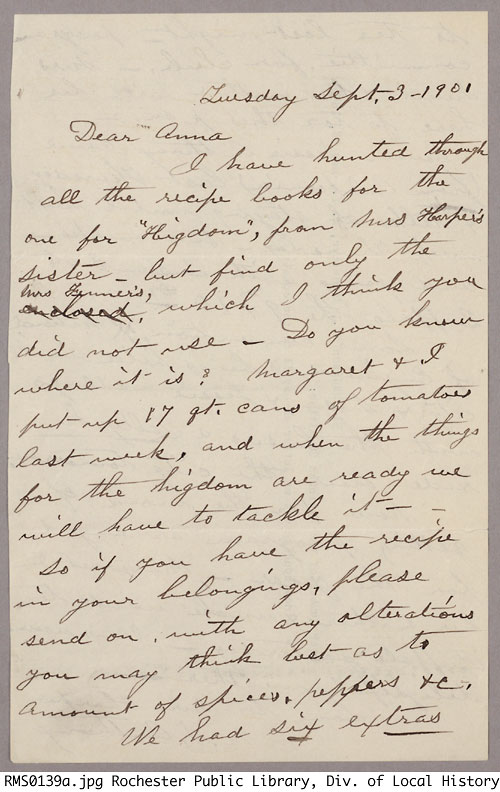 Tuesday Sept. 3 - 1901
Dear Anna
I have hunted through
all the recipe books for the
one for "Higdom", from Mrs Harper's
sister - but find only the
Mrs
enclosed, which I think you
did not use - Do you know
where it is? Margaret & I
put up 17 qt. cans of tomatoes
last week, and when the things
for the higdom are ready we
will have to tackle it - -
So if you have the recipe
in your belongings, please
send on, with any alterations
you may think best as to
amount of spices, peppers &c.
We had six extras
RMS0139a.jpg Rochester Public Library, Div. of Local History